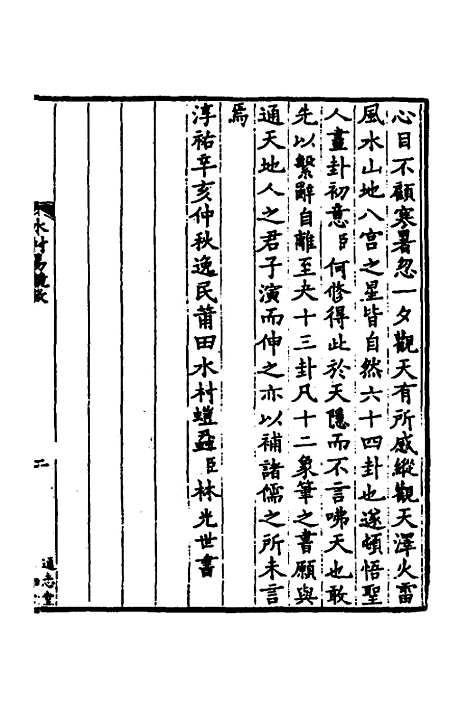 心目不顧寒暑忽一夕觀天有所感縱觀天澤火雷
風水山地八宮之星皆自然六十四卦也遂頓悟聖
人畫卦初意臣何修得此於天隱而不言咈天也敢
先以繫辭自離至夬十三卦凡十二象筆之書願與
通天地人之君子演而伸之亦以補諸儒之所未言
焉
淳祐辛亥仲秋逸民莆田水村螘蝨臣林光世書
水村易鏡敘
二
通志堂